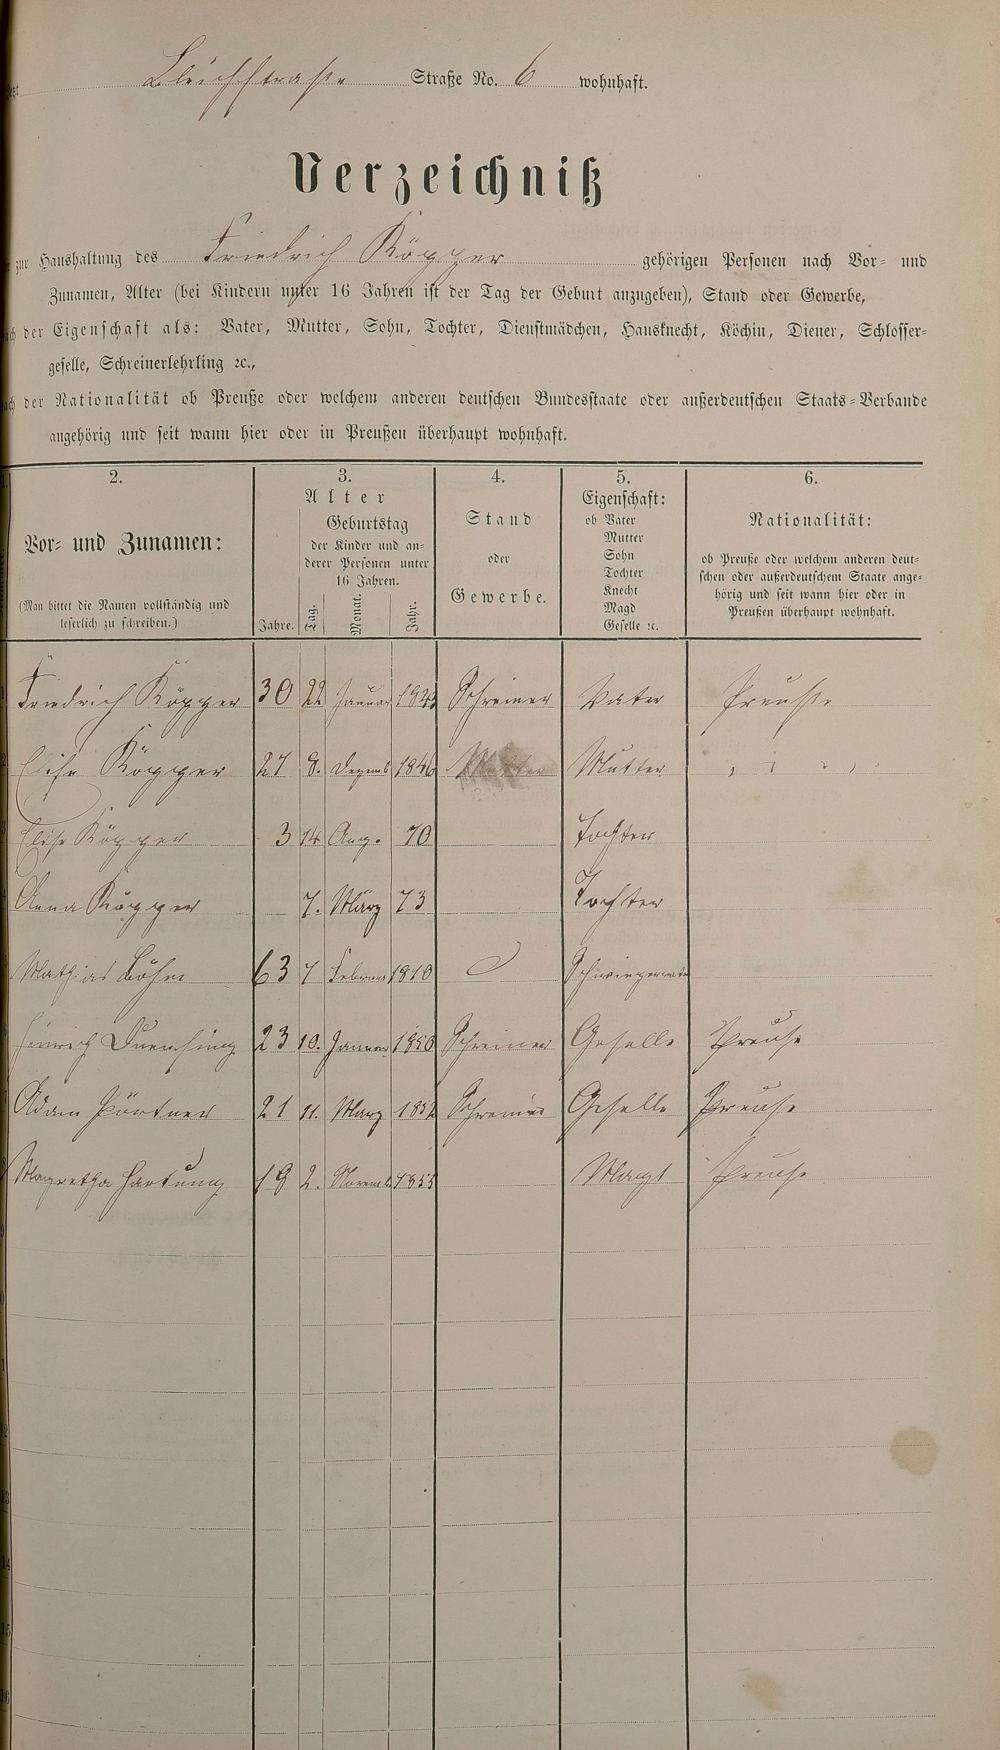 Bleichstraße Straße No. 6 wohnhaft.
Verzeichniß
zur Haushaltung des Friedrich Köpper gehörigen Personen nach Vor- und
Zunamen, Alter (bei Kindern unter 16 Jahren ist der Tag der Geburt anzugeben), Stand oder Gewerbe,
der Eigenschaft als: Vater, Mutter, Sohn, Tochter, Dienstmädchen, Hausknecht, Köchin, Diener, Schlosser-
geselle, Schreinerlehrling ꝛc.,
der Nationalität ob Preuße oder welchem anderen deutschen Bundesstaate oder außerdeutschen Staats-Verbande
angehörig und seit wann hier oder in Preußen überhaupt wohnhaft.
2. 3. 4. 5. 6.
Vor- und Zunamen:
(Man bittet die Namen vollständig und
leserlich zu schreiben.)
Alter
Jahre.
Geburtstag
der Kinder und an-
derer Personen unter
16 Jahren.
Tag. Monat. Jahr.
Stand
oder
Gewerbe.
Eigenschaft:
ob Vater
Mutter
Sohn
Tochter
Knecht
Magd
Geselle ꝛc.
Nationalität:
ob Preuße oder welchem anderen deut-
schen oder außerdeutschem Staate ange-
hörig und seit wann hier oder in
Preußen überhaupt wohnhaft.
Friedrich Köpper 30 22 Januar 1843 Schreiner Vater Preuße
2 Elise Köpper 27 8. Dezemb 1846 Mutter Mutter " "
3 Elise Köpper 3 14 Aug. 70 Tochter
4 Anna Köpper 7. März 73 Tochter
5 Mathias Böhm 63 7 Februar 1810 Schwiegervater
6 Heinrich Duensing 23 10. Januar 1850 Schreiner Geselle Preuße
7 Adam Pörtner 21 11. März 1852 Schreiner Geselle Preuße
8 Magretha Hartung 19 2. Novemb 1855 Magt Preuße
9
0
1
12
13
14
15
16